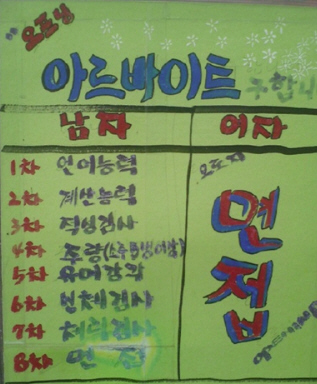 오픈닝
아르바이트 구합니다
남자
1차 언어능력
2차 계산능력
3차 적성검사
4차 주량(소주5병이상)
5차 유머감각
6차 신체검사
7차 체력검사
8차 면접
여자
오로지
면접